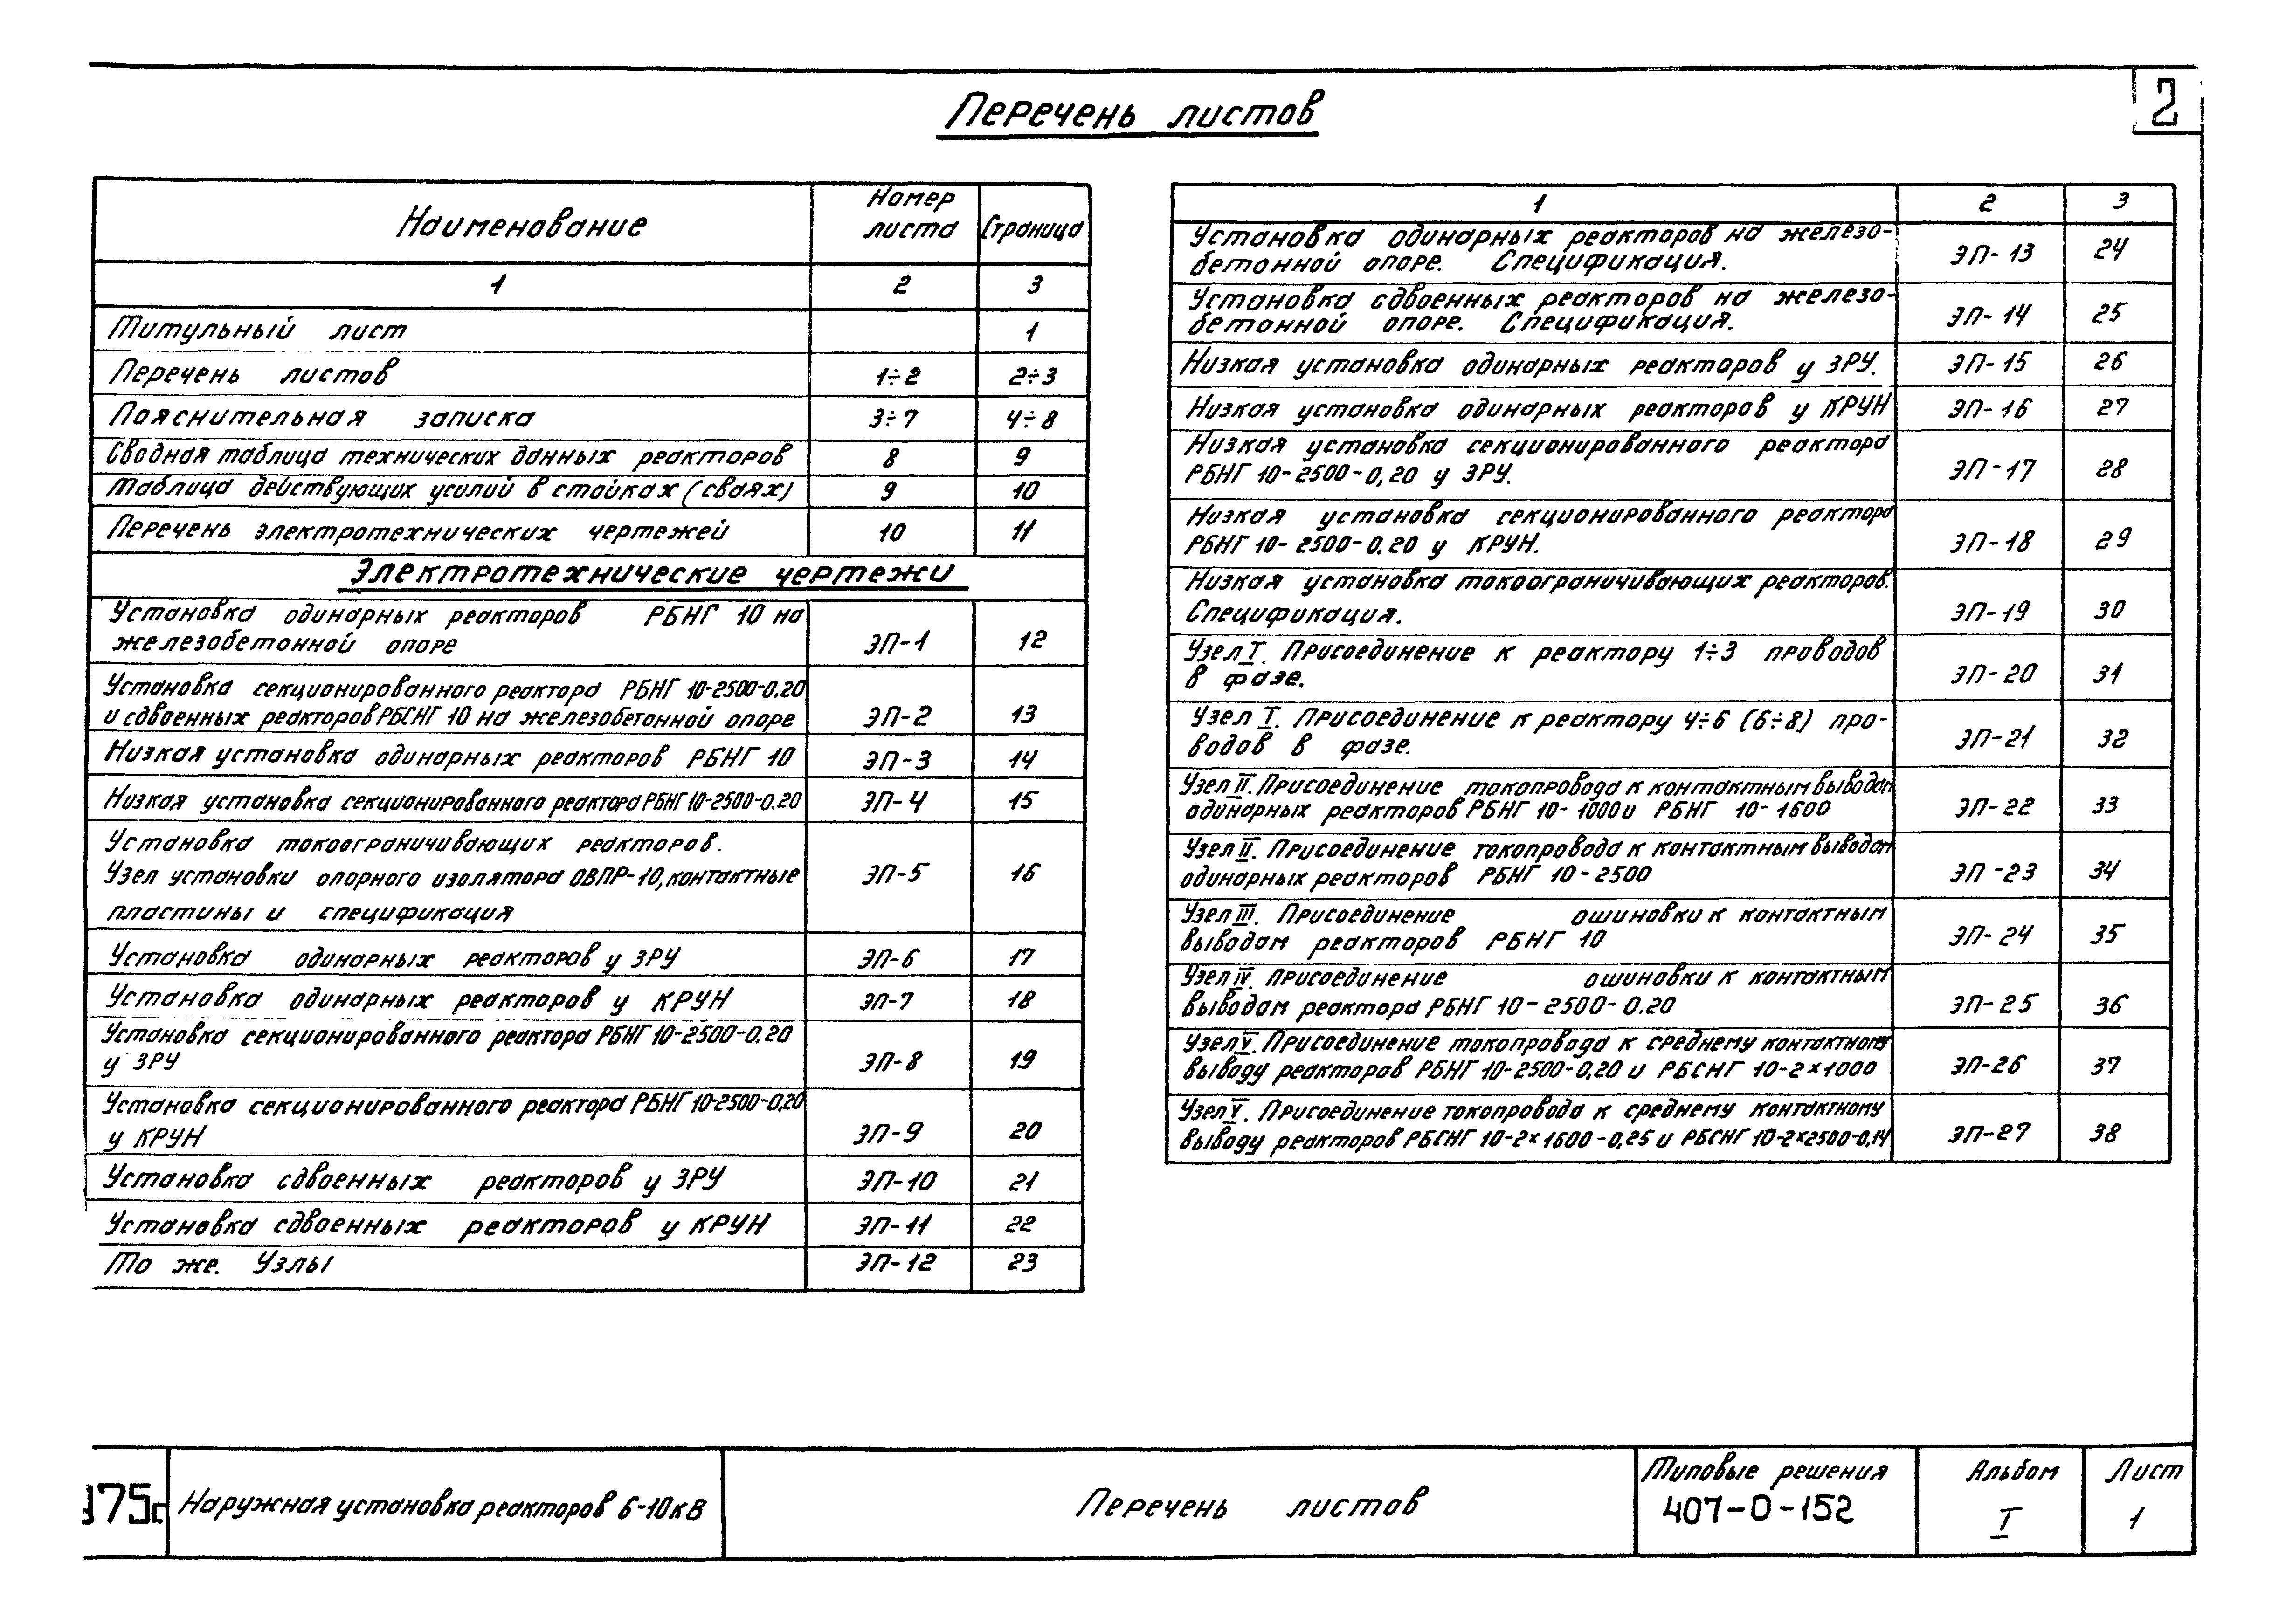 Перечень листов
2
Наименование Номер листа Страница
1 2 3
Титульный лист 1
Перечень листов 1÷2 2÷3
Пояснительная записка 3÷7 4÷8
Сводная таблица технических данных реакторов 8 9
Таблица действующих усилий в стойках (сваях) 9 10
Перечень электротехнических чертежей 10 11
Электротехнические чертежи
Установка одинарных реакторов РБНГ 10 на
железобетонной опоре ЭП-1 12
Установка секционированного реактора РБНГ 10-2500-0.20
и сдвоенных реакторов РБСНГ 10 на железобетонной опоре ЭП-2 13
Низкая установка одинарных реакторов РБНГ 10 ЭП-3 14
Низкая установка секционированного реактора РБНГ 10-2500-0.20 ЭП-4 15
Установка токоограничивающих реакторов.
Узел установки опорного изолятора ОВПР-10, контактные ЭП-5 16
пластины и спецификация
Установка одинарных реакторов у ЗРУ ЭП-6 17
Установка одинарных реакторов у КРУН ЭП-7 18
Установка секционированного реактора РБНГ 10-2500-0.20
у ЗРУ ЭП-8 19
Установка секционированного реактора РБНГ 10-2500-0,20
у КРУН ЭП-9 20
Установка сдвоенных реакторов у ЗРУ ЭП-10 21
Установка сдвоенных реакторов у КРУН ЭП-11 22
То же. Узлы ЭП-12 23
1 2 3
Установка одинарных реакторов на железо-
бетонной опоре. Спецификация. ЭП-13 24
Установка сдвоенных реакторов на железо-
бетонной опоре. Спецификация. ЭП-14 25
Низкая установка одинарных реакторов у ЗРУ. ЭП-15 26
Низкая установка одинарных реакторов у КРУН ЭП-16 27
Низкая установка секционированного реактора
РБНГ 10-2500-0,20 у ЗРУ. ЭП-17 28
Низкая установка секционированного реактора
РБНГ 10-2500-0.20 у КРУН. ЭП-18 29
Низкая установка токоограничивающих реакторов.
Спецификация. ЭП-19 30
Узел I. Присоединение к реактору 1÷3 проводов
в фазе. ЭП-20 31
Узел I. Присоединение к реактору 4÷6 (6÷8) про-
водов в фазе. ЭП-21 32
Узел II. Присоединение токопровода к контактным выводам
одинарных реакторов РБНГ 10-1000 и РБНГ 10-1600 ЭП-22 33
Узел II. Присоединение токопровода к контактным выводам
одинарных реакторов РБНГ 10-2500 ЭП-23 34
Узел III. Присоединение ошиновки к контактным
выводам реакторов РБНГ 10 ЭП-24 35
Узел IV. Присоединение ошиновки к контактным
выводам реактора РБНГ 10-2500-0.20 ЭП-25 36
Узел V. Присоединение токопровода к среднему контактному
выводу реакторов РБНГ 10-2500-0,20 и РБСНГ 10-2×1000 ЭП-26 37
Узел V. Присоединение токопровода к среднему контактному
выводу реакторов РБСНГ 10-2×1600-0,25 и РБСНГ 10-2×2500-0,14 ЭП-27 38
Наружная установка реакторов 6-10кВ
Перечень листов
Типовые решения
407-0-152
Альбом
I
Лист
1